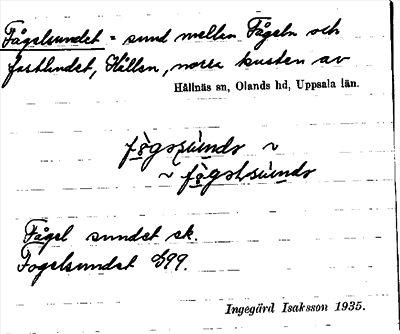 Fågelsundet = sund mellan Fågeln och
fastlandet, Hållen, norra kusten av
Hållnäs sn, Olands hd, Uppsala län.
fò̀gəsùndə ~
~ fògəlsùndə
Fågel sundet ek.
Fogelsundet G99.
Ingegärd Isaksson 1935.